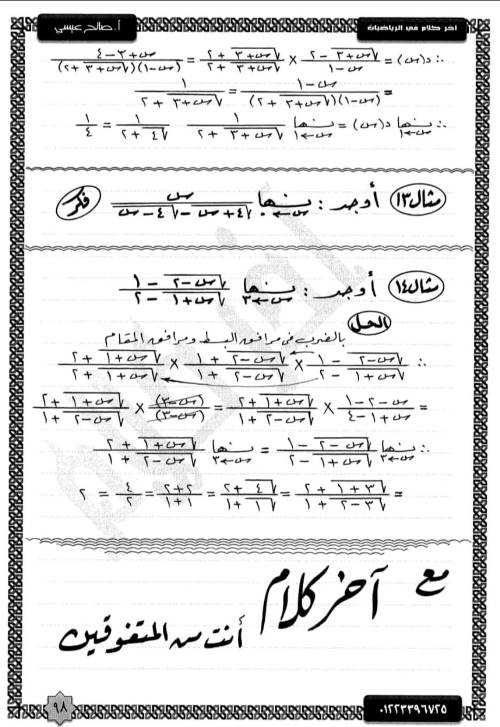 آخر كلام في الرياضيات
أ. صالح عيسى
∴ د(س) = (√(س+٣) - ٢)/(س-١) × (√(س+٣) + ٢)/(√(س+٣) + ٢) = (س+٣-٤)/((س-١)(√(س+٣)+٢))
= (س-١)/((س-١)(√(س+٣)+٢)) = ١/(√(س+٣)+٢)
∴ نهـا س←١ د(س) = نهـا س←١ ١/(√(س+٣)+٢) = ١/(√٤+٢) = ١/٤
مثال ١٣ أوجد : نهـا س/(√(٤+س) - √(٤-س)) فكر
مثال ١٤ أوجد : نهـا س←٣ (√(س-٢) - ١)/(√(س+١) - ٢)
الحل
بالضرب فى مرافق البسط ومرافق المقام
∴ (√(س-٢) - ١)/(√(س+١) - ٢) × (√(س-٢) + ١)/(√(س-٢) + ١) × (√(س+١) + ٢)/(√(س+١) + ٢)
= (س-٢-١)/(س+١-٤) × (√(س+١)+٢)/(√(س-٢)+١) = (س-٣)/(س-٣) × (√(س+١)+٢)/(√(س-٢)+١)
∴ نهـا س←٣ (√(س-٢) - ١)/(√(س+١) - ٢) = نهـا س←٣ (√(س+١) + ٢)/(√(س-٢) + ١)
= (√(٣+١) + ٢)/(√(٣-٢) + ١) = (√٤ + ٢)/(√١ + ١) = (٢+٢)/(١+١) = ٤/٢ = ٢
مع آخر كلام
أنت من المتفوقين
٩٨
٠١٢٢٣٣٩٦٧٢٥